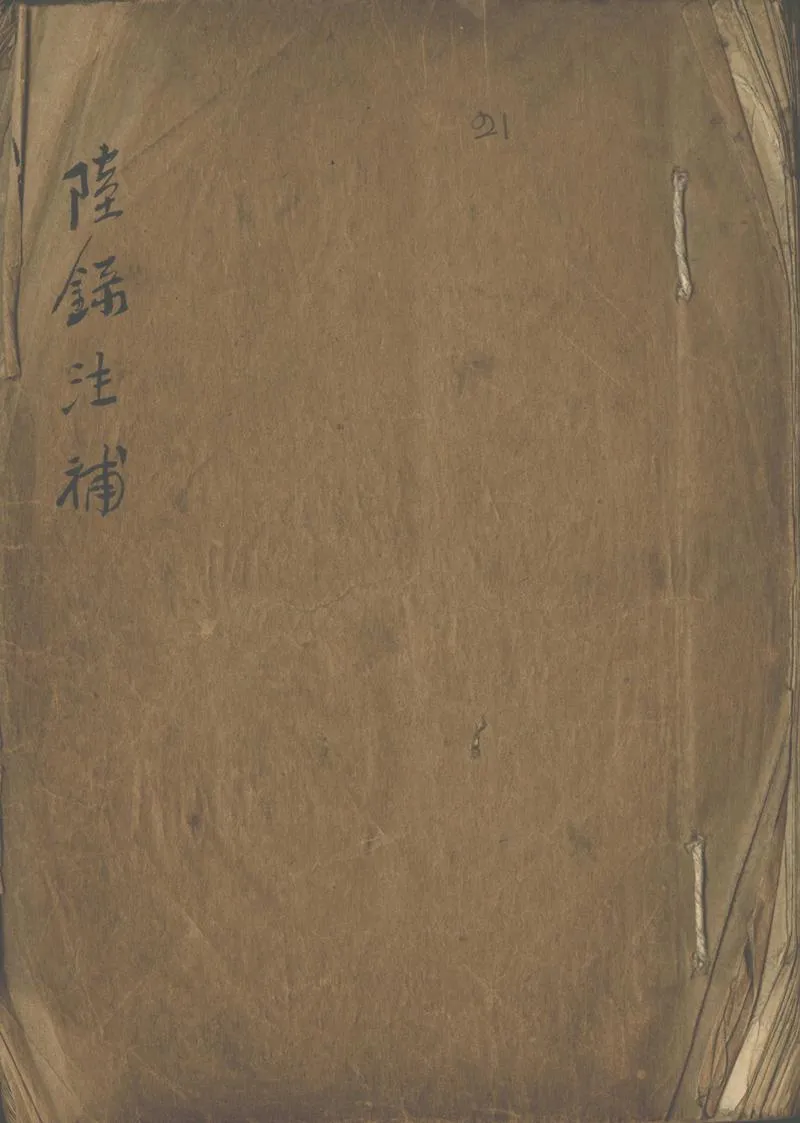 21
陸錄注補